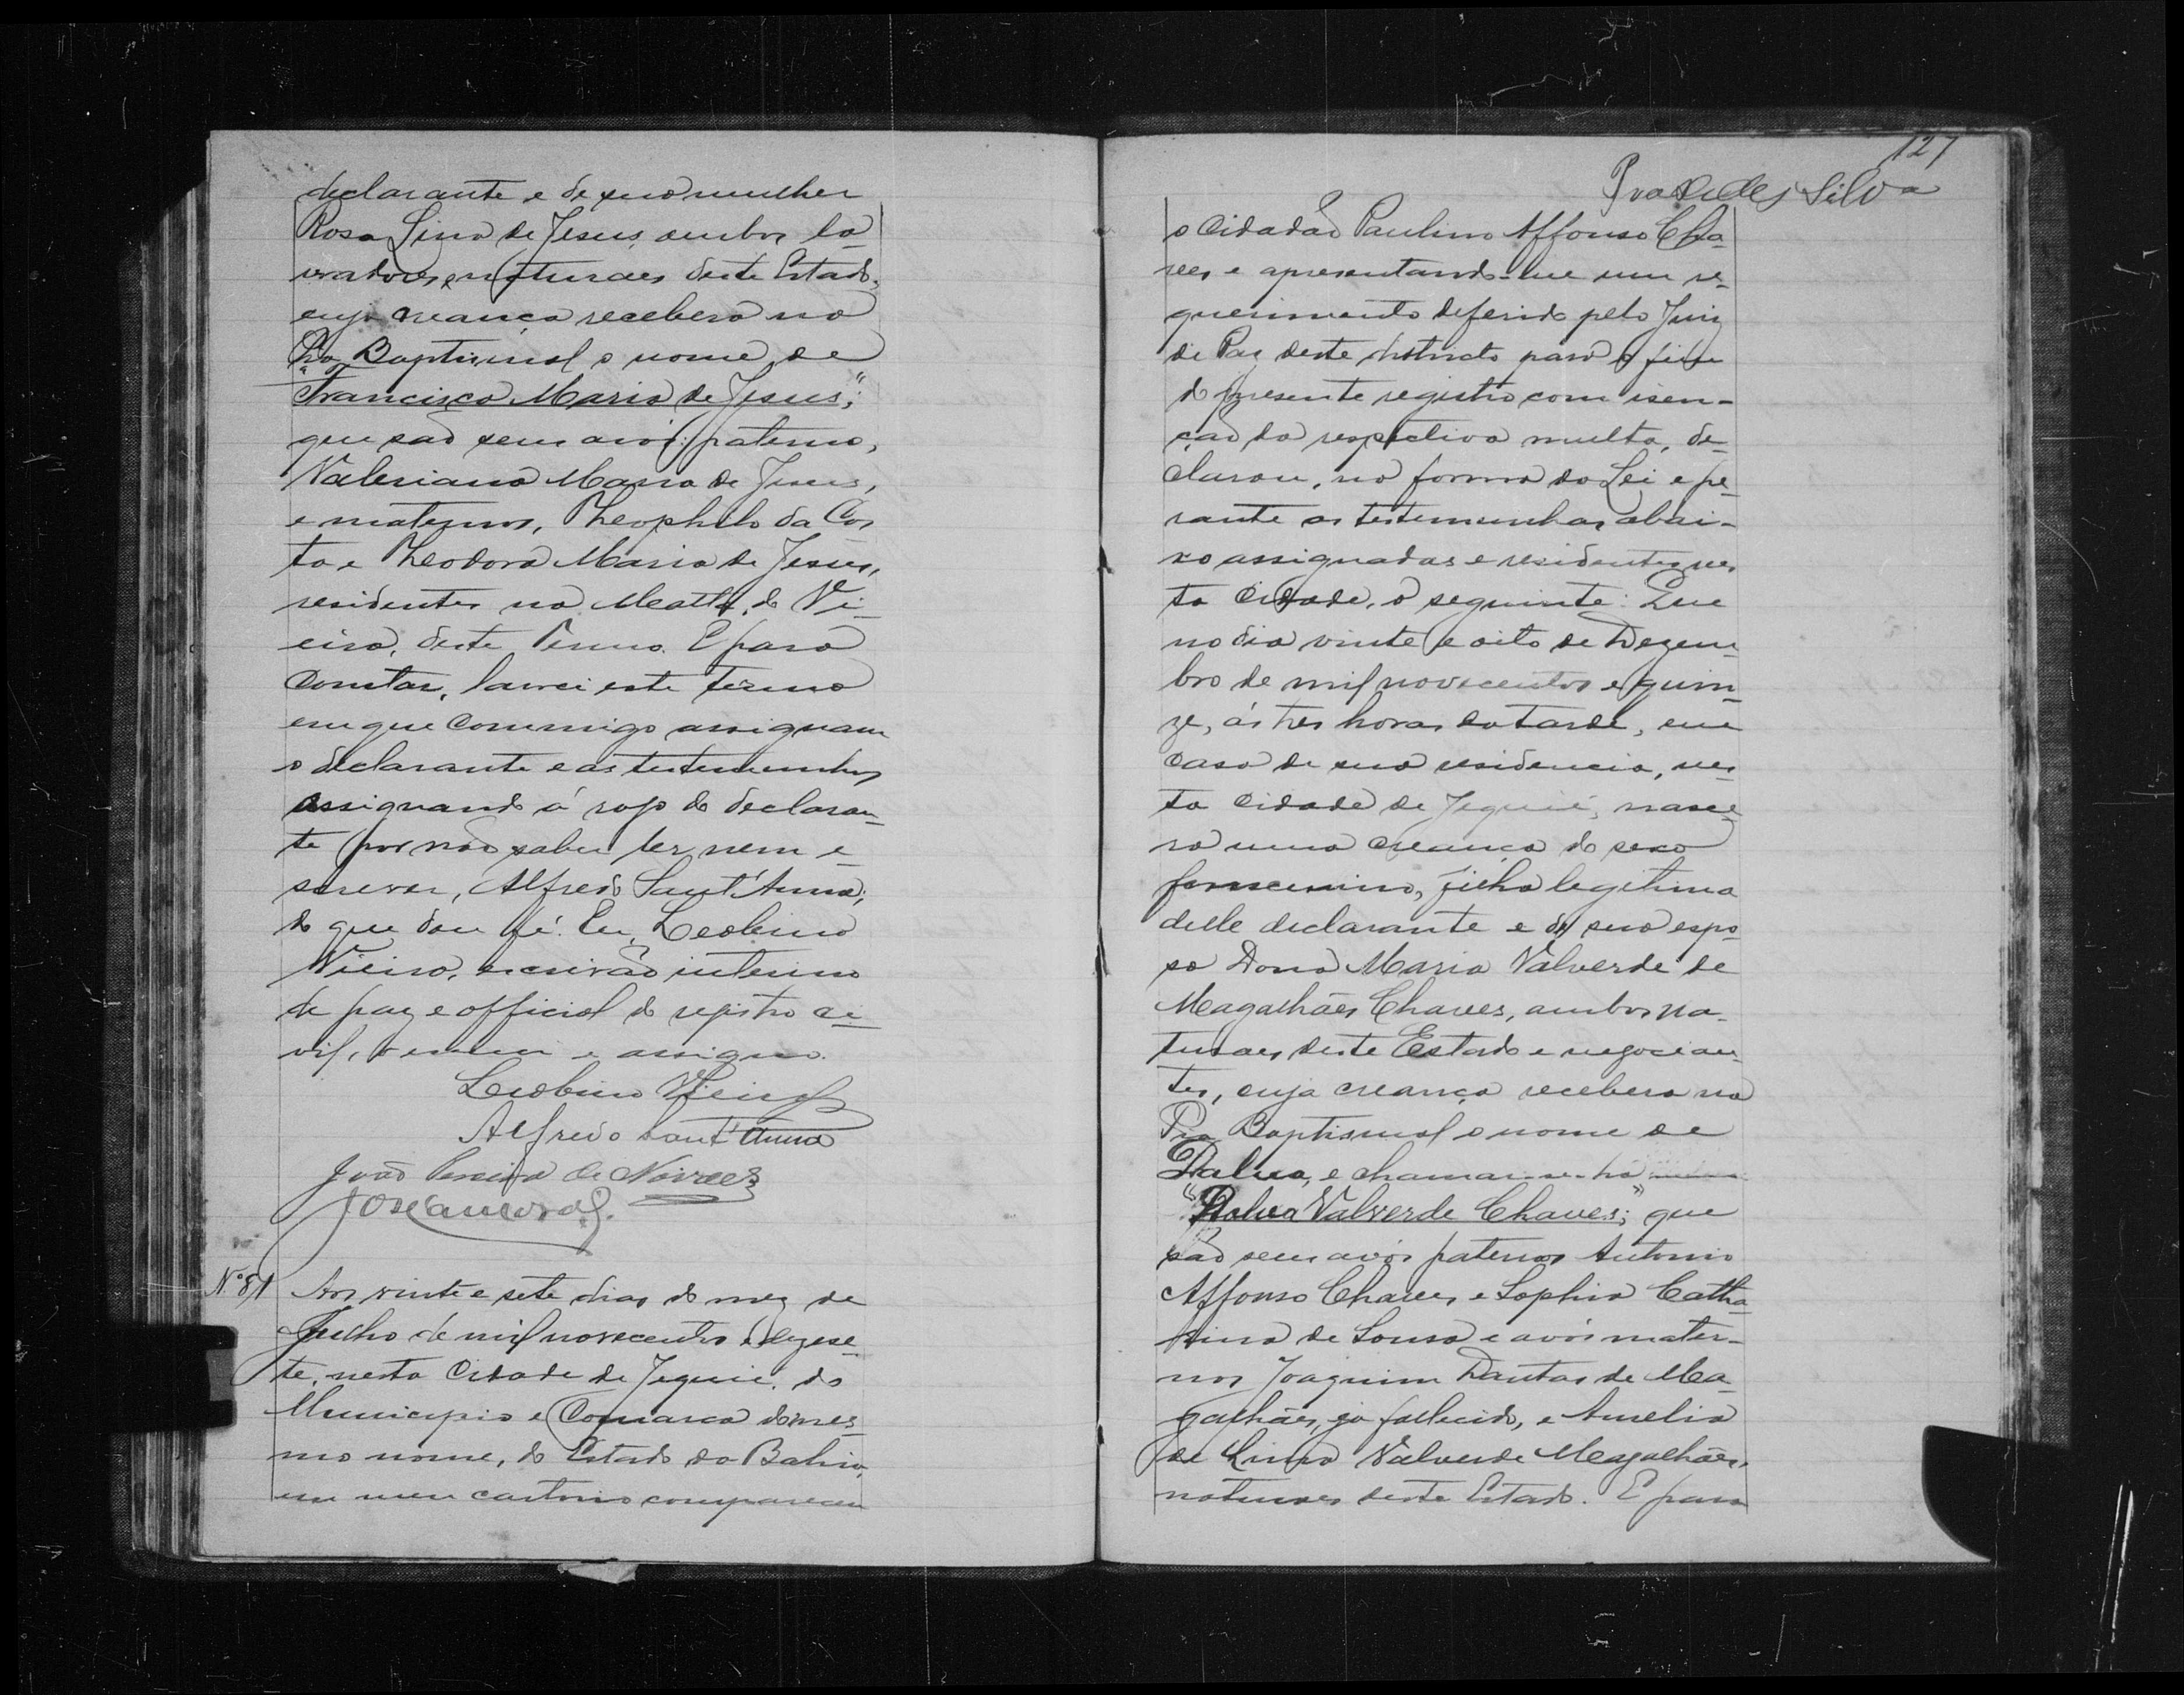 declarante e de sua mulher
Rosa Lina de Jesus, ambos la-
vradores, naturaes deste Estado,
cuja creança receberá na
Pia Baptismal o nome de
"Francisca Maria de Jesus;"
que são seus avós: paterno,
Valeriana Maria de Jesus,
e maternos, Theophilo da Cos
ta e Theodora Maria de Jesus,
residentes na Matta do Vi-
eira, deste Termo. E para
constar, lavrei este termo
em que commigo assignam
o declarante e as testemunhas
assignando á rogo do declaran-
te por não saber ler nem e-
screver, Alfredo Sant'Anna;
do que dou fé. Eu, Leobino
Vieira, escrivão interino
de paz e official do registro ci-
vil, o escrevi e assigno.
Leobino Vieira
Alfredo Sant'Anna
João Pereira de Novaes
N.º 81 Aos vinte e sete dias do mez de
Julho de mil novecentos e dezese-
te, nesta Cidade de Jequié, do
Municipio e Comarca do mes
mo nome, do Estado da Bahia,
em meu cartorio compareceu
127
Silva
o cidadão Paulino Affonso Cha-
ves e apresentando-me um re-
querimento deferido pelo Juiz
de Paz deste districto para o fim
do presente registro com isen-
ção da respectiva multa, de-
clarou, na forma da Lei e pe-
rante as testemunhas abai-
xo assignadas e residentes nes
ta Cidade, o seguinte: Que
no dia vinte e oito de Dezem-
bro de mil novecentos e quin-
ze, ás tres horas da tarde, em
casa de sua residencia, nes-
ta cidade de Jequié, nasce-
ra uma creança do sexo
femenino, filha legitima
delle declarante e de sua espo-
sa Dona Maria Valverde de
Magalhães Chaves, ambos na-
turaes deste Estado e negocian-
tes, cuja creança recebera na
Pia Baptismal o nome de
Dalva, e chamar-se-ha
"Dalva Valverde Chaves;" que
são seus avós paternos Antonio
Affonso Chaves e Sophia Catha-
rina de Sousa e avós mater-
nos Joaquim Dantas de Ma-
galhães, já fallecido, e Amelia
de Lima Valverde Magalhães,
naturaes deste Estado. E para